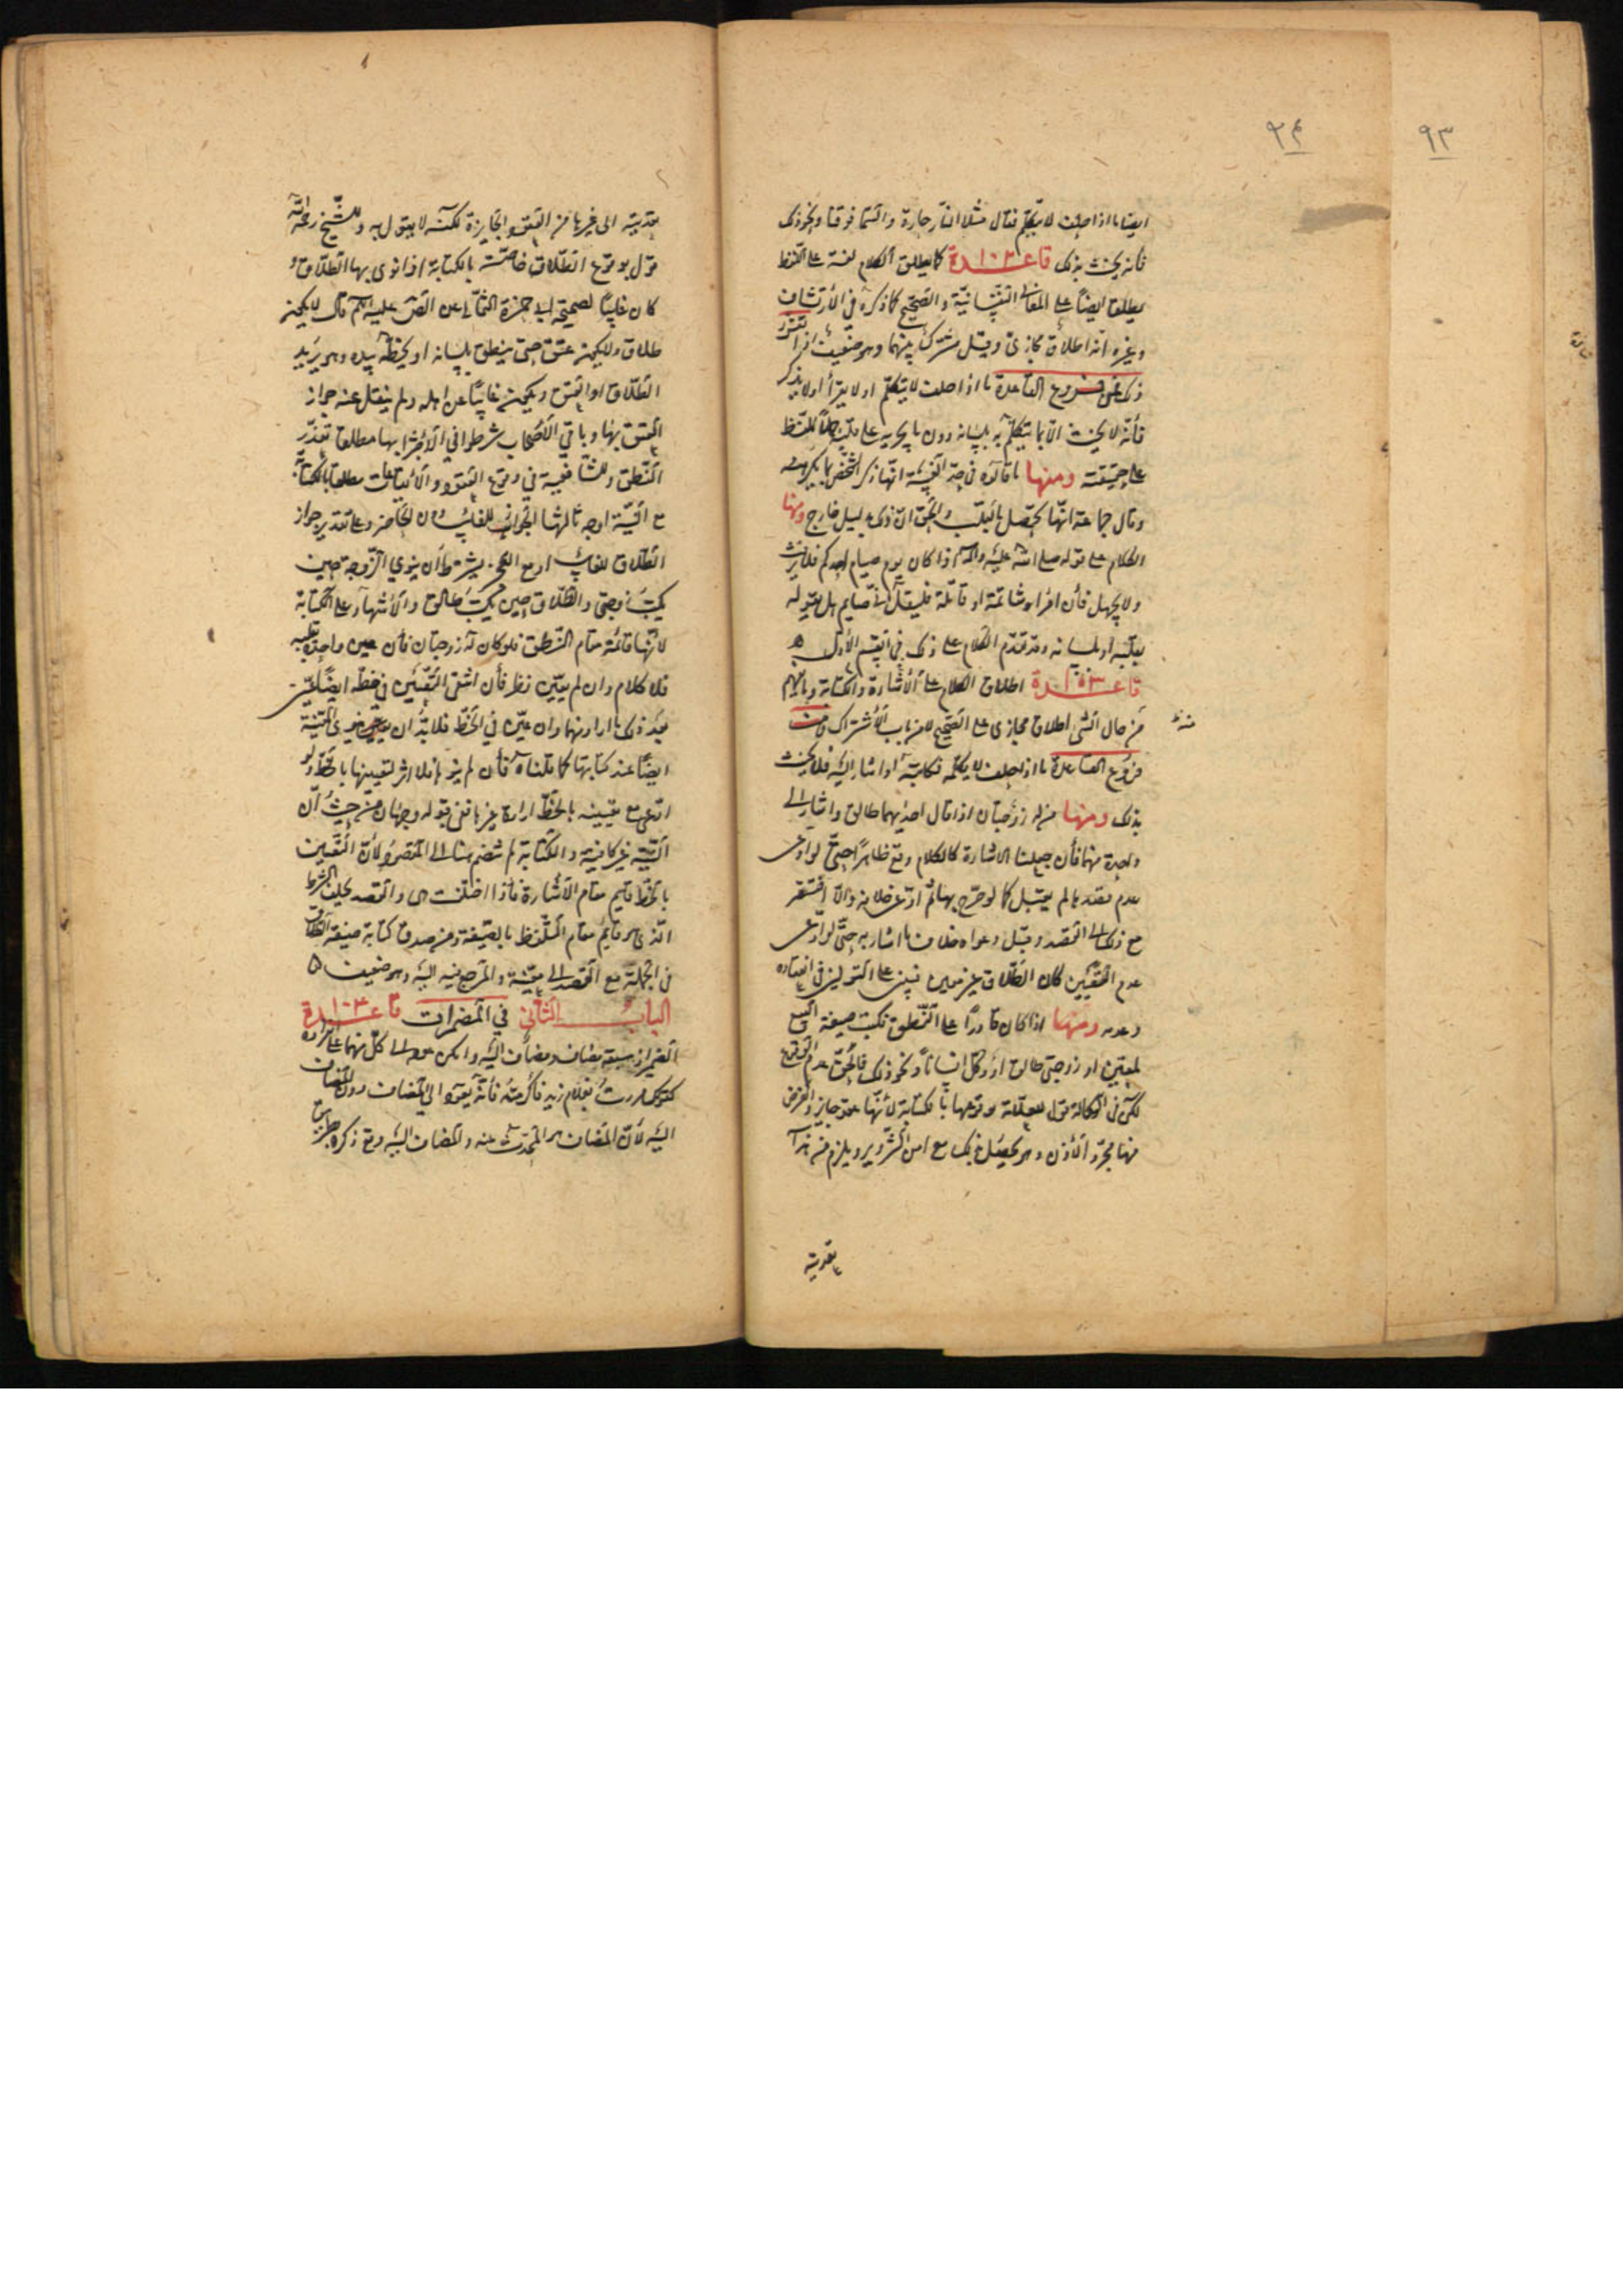 ٩٣
٩٤
ايضا ما اذا حلف لا يتكلم فقال مثلا النار حارة والسما فوقنا ونحو ذلك
فانه يحنث بذلك قاعدة ١٠٣ كما يطلق الكلام لغة على اللفظ
يطلق ايضا على المعاني النفسانية والصحيح كما ذكره في الارتشاف
وغيره انه اطلاق مجازى وقيل مشترك بينهما وهو ضعيف اذا تقرر
ذلك فمن فروع القاعدة ما اذا حلف لا يتكلم او لا يقرأ او لا يذكر
فانه لا يحنث الا بما يتكلم به بلسانه دون ما يجريه على قلبه حملا للفظ
على حقيقته ومنها ما قالوه في حد الغيبة انها ذكر الشخص بما يكرهه
وقال جماعة انها تحصل بالقلب والحق ان ذلك بدليل خارج ومنها
الكلام على قوله صلى الله عليه وآله اذا كان يوم صيام احدكم فلا يرفث
ولا يجهل فان امرء شاتمه او قاتله فليقل انى صايم هل يقوله
بقلبه او بلسانه وقد تقدم الكلام على ذلك في القسم الأول ه
قاعدة اطلاق الكلام على الاشارة والكتابة وما يفهم
من حال الشى اطلاق مجازى على الصحيح لا من باب الاشتراك فمن
فروع القاعدة ما اذا حلف لا يكلمه فكاتبه او اشار اليه فلا يحنث
بذلك ومنها من له زوجتان اذا قال احديهما طالق واشار الى
واحدة منهما فان جعلنا الاشارة كالكلام وقع ظاهرا حتى لو ادعى
عدم قصدها لم يقبل كما لو صرح بها ثم ادعى خلافه والا افتقر
مع ذلك الى القصد وقبل دعواه خلاف ما اشار به حتى لو ادعى
عدم التعيين كان الطلاق غير معين فيبنى على القولين في اعتباره
وعدمه ومنها اذا كان قادرا على النطق فكتب صيغة البيع
لمعين او زوجتى طالق او وكل انسانا ونحو ذلك فالحق عدم الوقوع
لكن في الوكالة قول للعلامة بوقوعها بالكتابة لانها عقد جايز والغرض
منها مجرد الاذن وهو يحصل بذلك مع امن التزوير ويلزم منه
تعديته
تعديته الى غيرها من العقود الجايزة لكنه لا يقول به وللشيخ رحمه الله
قول بوقوع الطلاق خاصة بالكتابة اذا نوى بها الطلاق و
كان غايبا لصحيحة ابى حمزة الثمالى عن الصادق عليه السلم قال لا يكون
طلاق ولا يكون عتق حتى ينطق بلسانه او يخطه بيده وهو يريد
الطلاق او العتق ويكون غايبا عن اهله ولم ينقل عنه جواز
العتق بها وباقي الاصحاب شرطوا في الاجتزا بها مطلقا تعذر
النطق وللشافعية في وقوع العقود والايقاعات مطلقا بالكتابة
مع النية اوجه ثالثها الجواز للغائب دون الحاضر وعلى تقدير جواز
الطلاق للغائب او مع العجز يشترط أن ينوى الزوجة حين
يكتب زوجتى والطلاق حين يكتب طالق والاشهاد على الكتابة
لانها قائمة مقام النطق فلو كان له زوجتان فان عين واحدة بقلبه
فلا كلام وان لم يعين نظر فان انتفى التعيين في خطه ايضا عين
بعد ذلك ما اراد منهما وان عين في الخط فلا بد ان ينوى المعينة
ايضا عند كتابتها كما قلناه فأن لم ينو فلا اثر لتعيينها بالخط ولو
ادعى مع تعيينه بالخط ارادة غيرها ففى قبوله وجهان من حيث ان
النية غير كافية والكتابة لم تنضم هنا الى المقصود ولان التعيين
بالخط قايم مقام الاشارة فاذا اختلفت هى والقصد تخلف الشرط
الذى هو قايم مقام التلفظ بالصيغة ومن صدق كتابة صيغة الطلاق
فى الجملة مع القصد الى معينة والمرجع فيه اليه وهو ضعيف ه
الباب الثانى في المضمرات قاعدة ١٠٣
الضمير اذا سبقه مضاف ومضاف اليه وامكن عوده الى كل منهما على انفراده
كقولك مررت بغلام زيد فاكرمته فانه يعود الى المضاف دون المضاف
اليه لان المضاف هو المحدث عنه والمضاف اليه وقع ذكره بطريق